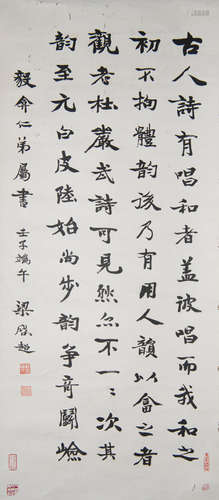 古人詩有唱和者蓋彼唱而我和之
初不拘體韻後乃有用人韻以畣之者
觀老杜嚴武詩可見然亦不一一次其
韻至元白皮陸始尚步韻爭奇鬭嶮
毅龠仁弟屬書 壬子端午 梁啟超